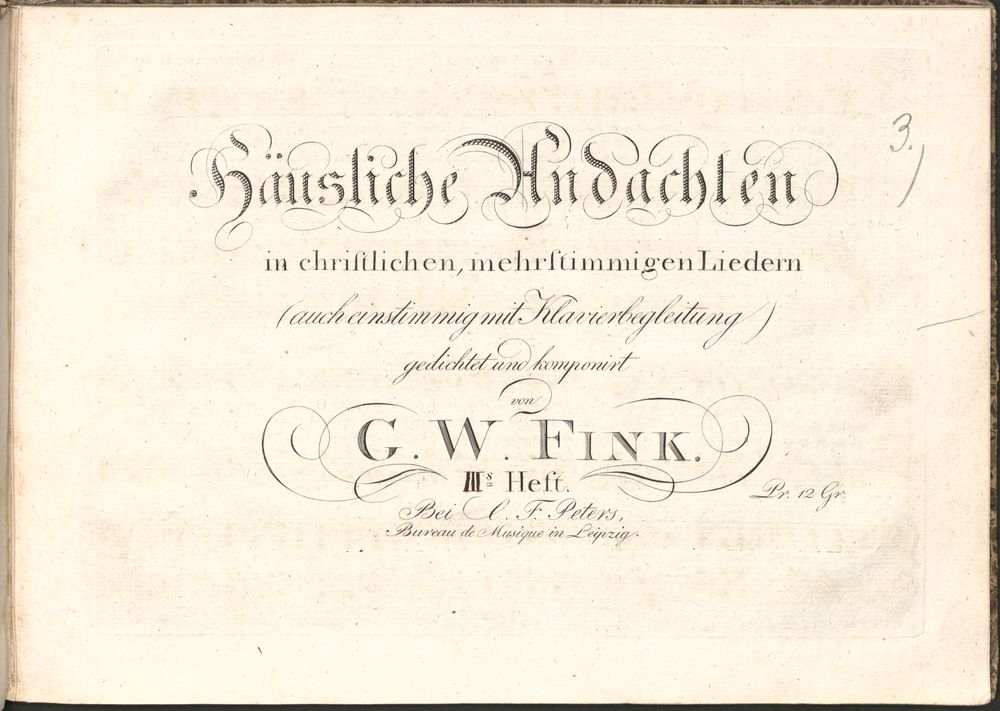 3.)
Häusliche Andachten
in christlichen, mehrstimmigen Liedern
(auch einstimmig mit Klavierbegleitung)
gedichtet und komponirt
von
G. W. FINK.
IIIs Heft.
Pr. 12 Gr.
Bei C. F. Peters,
Bureau de Musique in Leipzig.